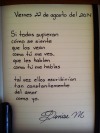 Viernes 22 de agosto del 2014
Si todos supieran
cómo se siente
que los vean
como tú me ves,
que les hablen
como tú me hablas
tal vez ellos escribirían
tan constantemente
del amor
como yo.
Denise M.